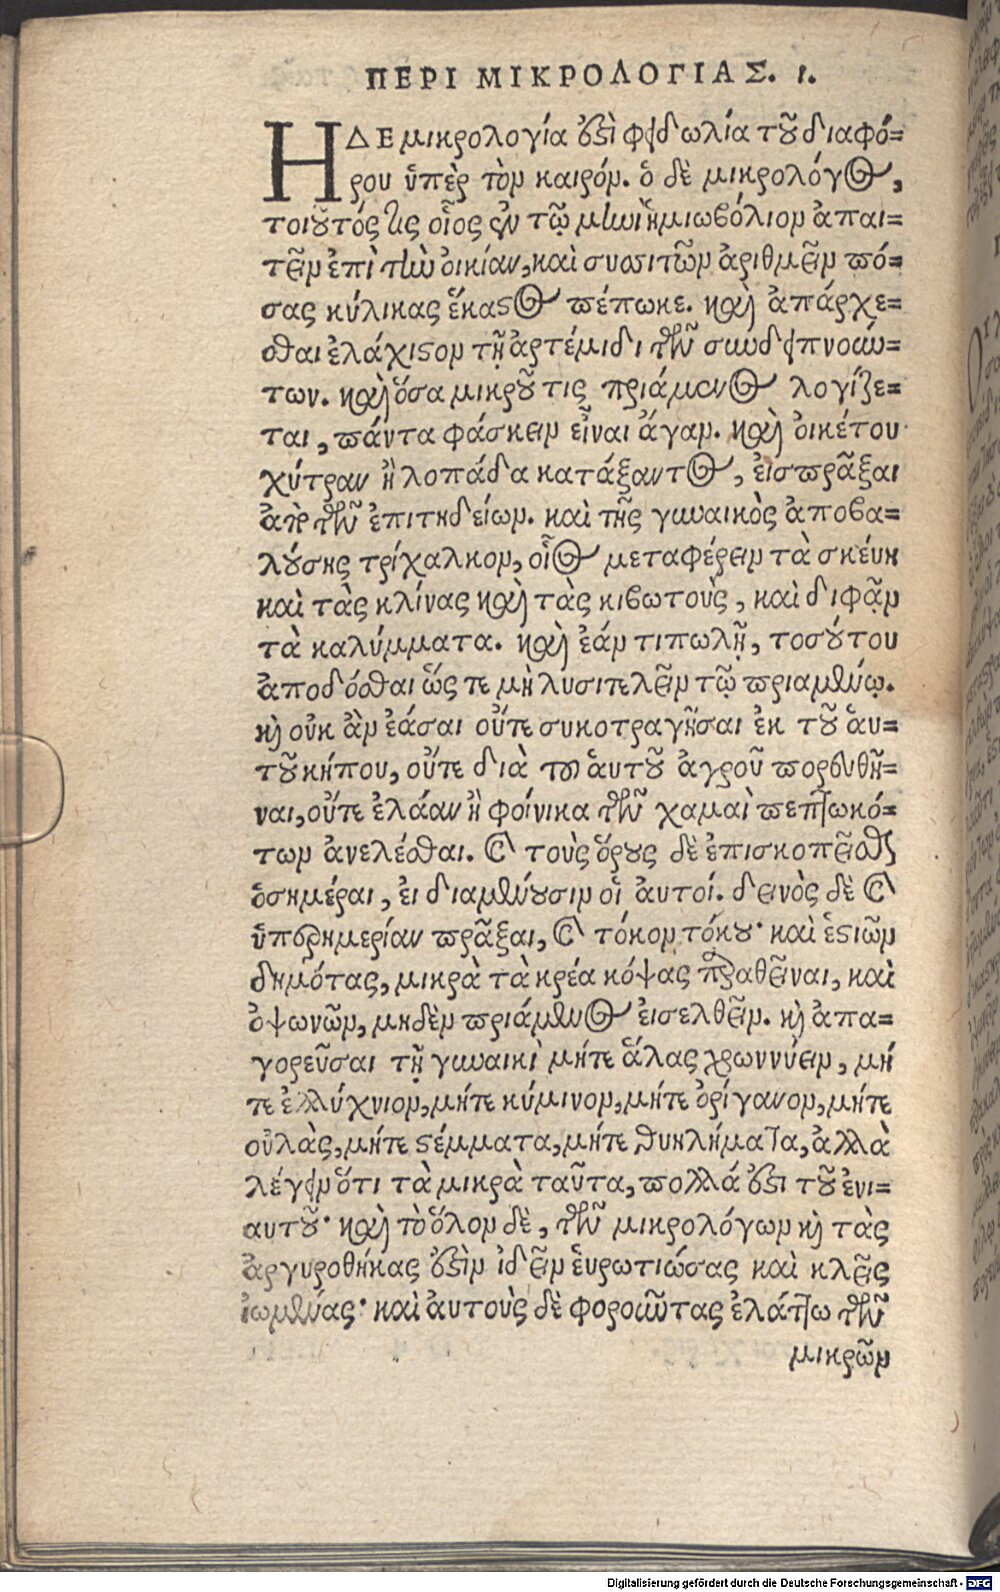 ΠΕΡΙ ΜΙΚΡΟΛΟΓΙΑΣ. ι.
Η ΔΕ μικρολογία ἐστὶ φειδωλία τοῦ διαφό=
ρου ὑπὲρ τὸν καιρόν. ὁ δὲ μικρολόγος,
τοιοῦτός τις οἷος ἐν τῷ μηνὶ ἡμιωβόλιον ἀπαι=
τεῖν ἐπὶ τὴν οἰκίαν, καὶ συσσιτῶν ἀριθμεῖν πό=
σας κύλικας ἕκαστος πέπωκε. καὶ ἀπάρχε=
σθαι ἐλάχιστον τῇ ἀρτέμιδι τῶν συνδειπνούν=
των. καὶ ὅσα μικροῦ τις πριάμενος λογίζε=
ται, πάντα φάσκειν εἶναι ἄγαν. καὶ οἰκέτου
χύτραν ἢ λοπάδα κατάξαντος, εἰσπρᾶξαι
ἀπὸ τῶν ἐπιτηδείων. καὶ τῆς γυναικὸς ἀποβα=
λούσης τρίχαλκον, οἷος μεταφέρειν τὰ σκέυη
καὶ τὰς κλίνας καὶ τὰς κιβωτοὺς, καὶ διφᾷν
τὰ καλύμματα. καὶ ἐάν τι πωλῇ, τοσούτου
ἀποδόσθαι ὥς τε μὴ λυσιτελεῖν τῷ πριαμένῳ.
καὶ οὐκ ἂν ἐάσαι οὔτε συκοτραγῆσαι ἐκ τοῦ ἁυ=
τοῦ κήπου, οὔτε διὰ τοῦ ἁυτοῦ ἀγροῦ πορευθῆ=
ναι, οὔτε ἐλάαν ἢ φοίνικα τῶν χαμαὶ πεπτωκό=
των ἀνελέσθαι. καὶ τοὺς ὅρους δὲ ἐπισκοπεῖσθαι
ὁσημέραι, ἐι διαμένουσιν οἱ ἀυτοί. δεινὸς δὲ καὶ
ὑπερημερίαν πρᾶξαι, καὶ τόκον τόκου· καὶ ἑστιῶν
δημότας, μικρὰ τὰ κρέα κόψας παραθεῖναι, καὶ
ὀψωνῶν, μηδὲν πριάμενος ἐισελθεῖν. καὶ ἀπα=
γορεῦσαι τῇ γυναικὶ μήτε ἅλας χρωννύειν, μή
τε ἐλλύχνιον, μήτε κύμινον, μήτε ὀρίγανον, μήτε
οὐλὰς, μήτε στέμματα, μήτε θυηλήματα, ἀλλὰ
λέγειν ὅτι τὰ μικρὰ ταῦτα, πολλά ἐστι τοῦ ἐνι=
αυτοῦ· καὶ τὸ ὅλον δὲ, τῶν μικρολόγων καὶ τὰς
ἀργυροθήκας ἐστὶν ἰδεῖν ἐυρωτιώσας καὶ κλεῖς
ἰωμένας· καὶ ἀυτοὺς δὲ φοροῦντας ἐλάττω τῶν
μικρῶν
Digitalisierung gefördert durch die Deutsche Forschungsgemeinschaft - DFG